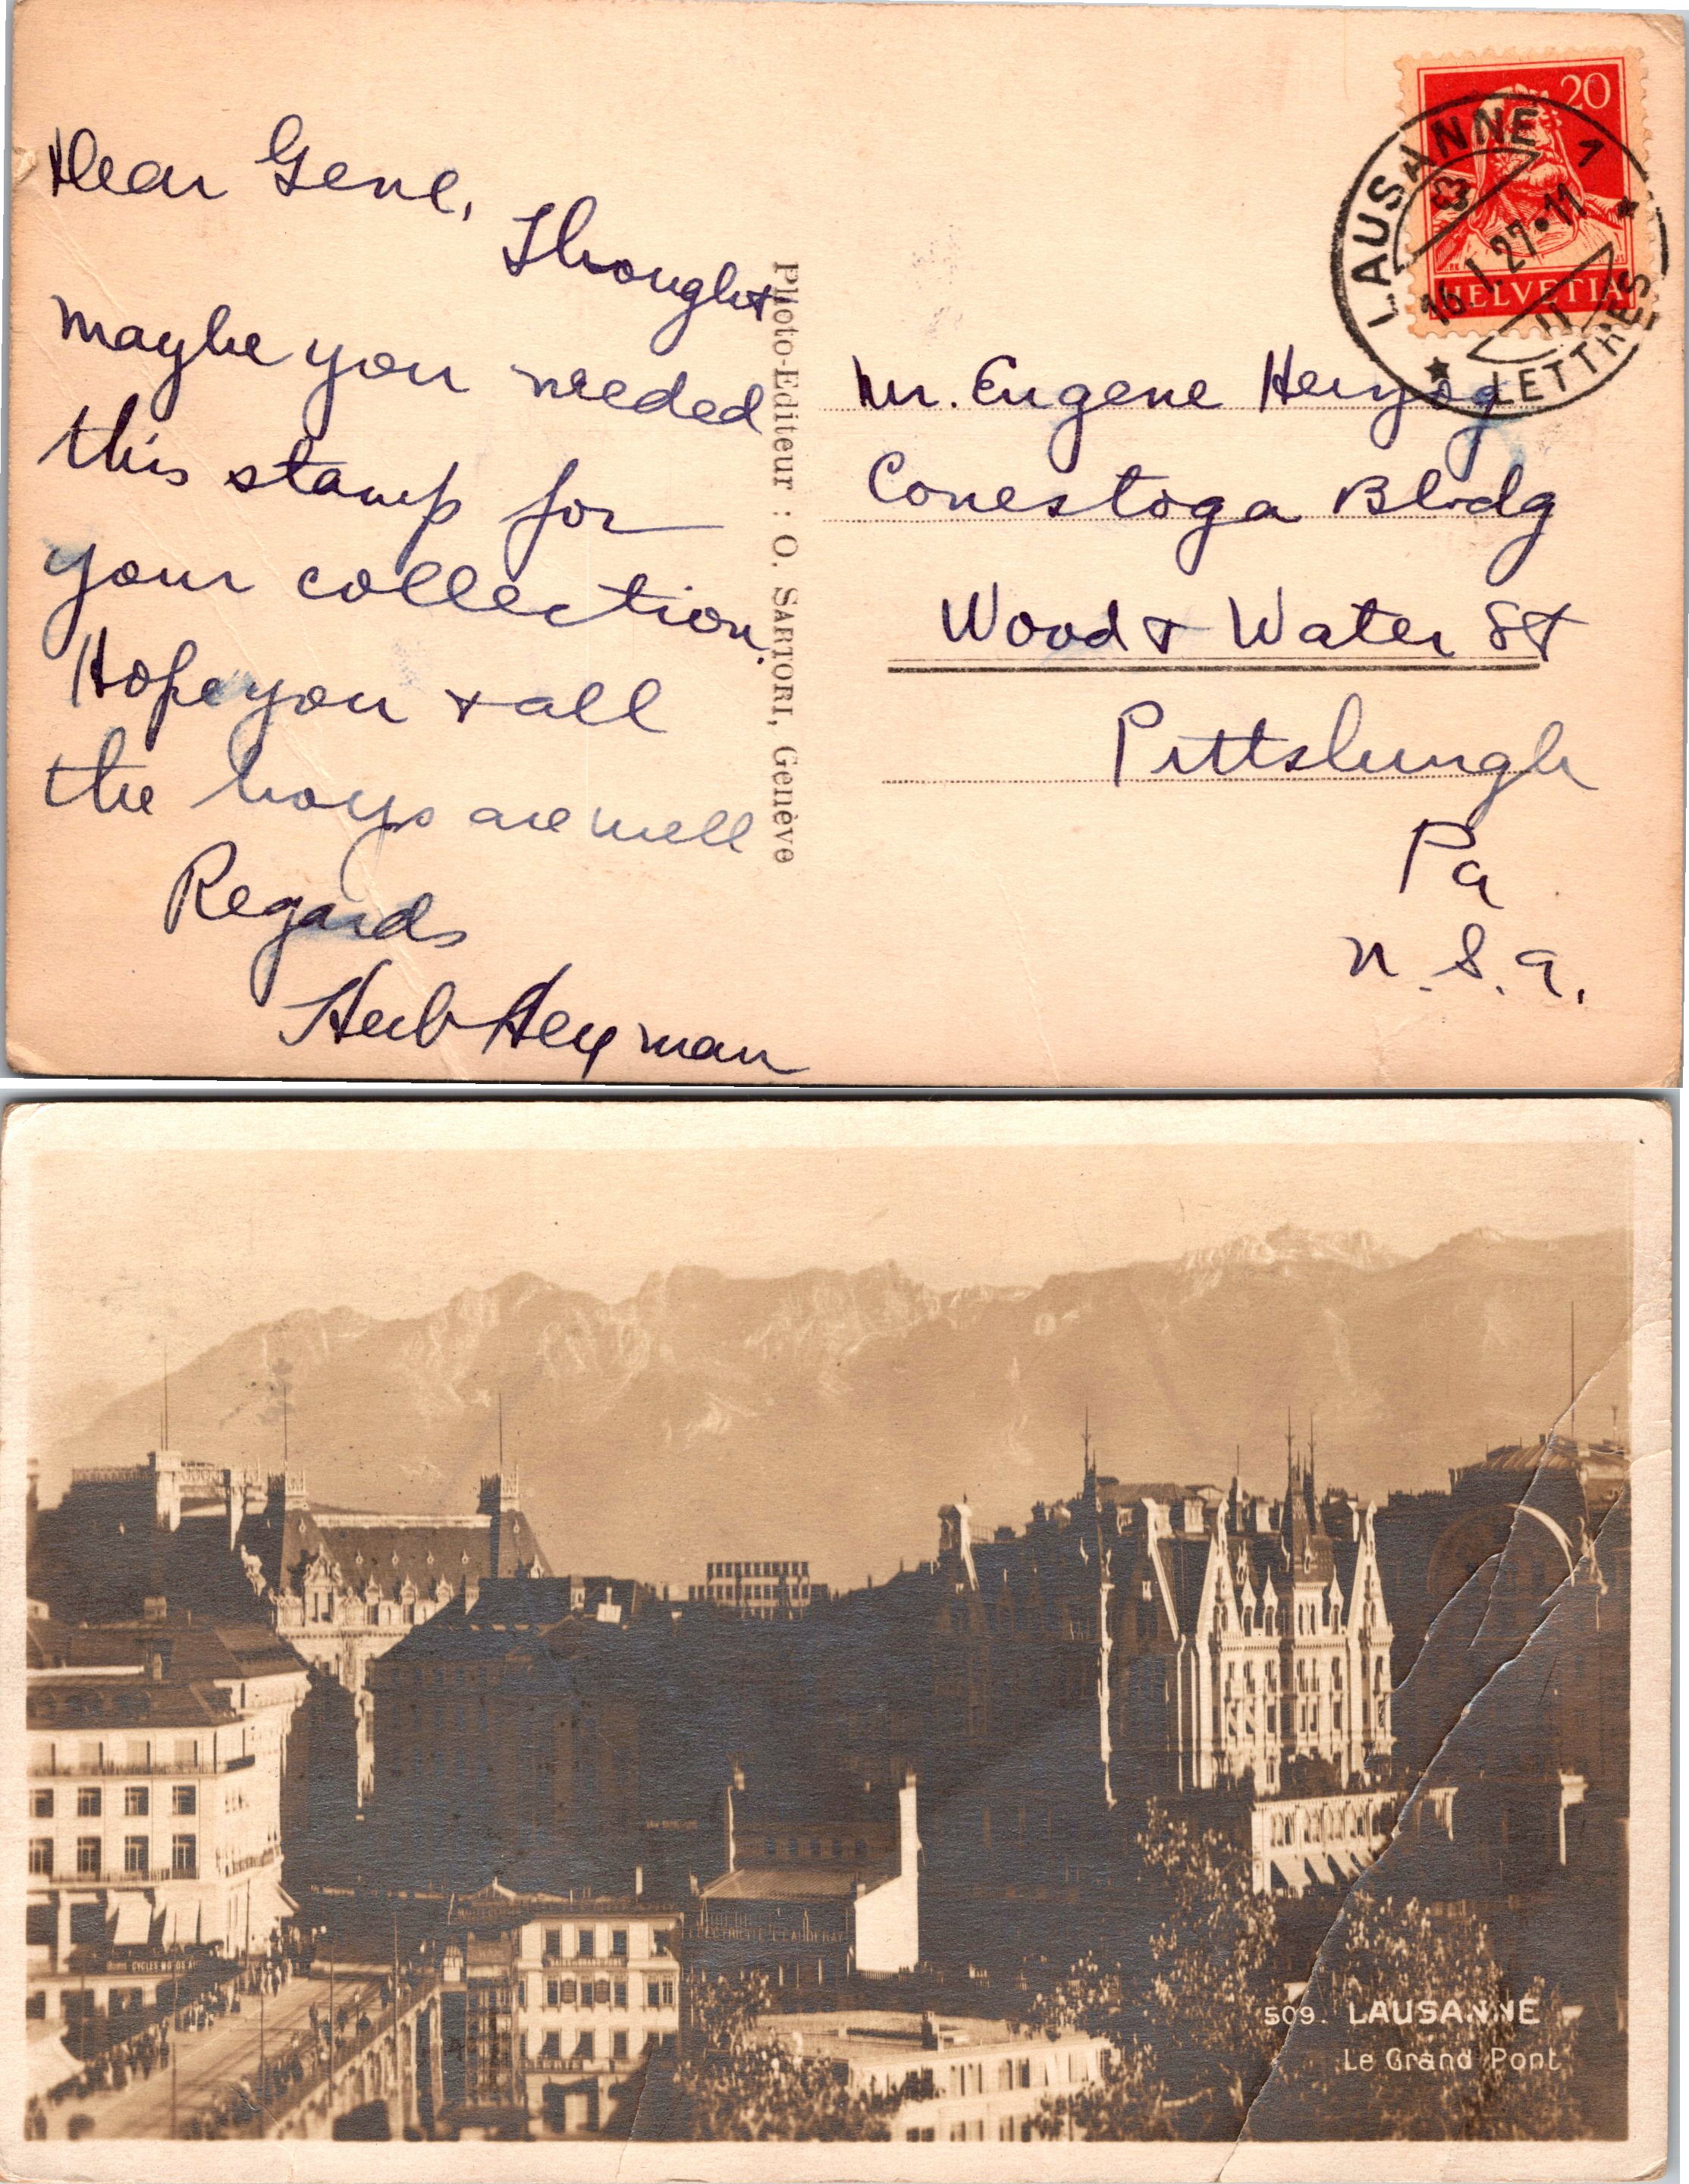 Dear Gene,
Thought
maybe you needed
this stamp for
your collection.
Hope you + all
the boys are well
Regards
Herb Heyman
Photo-Editeur : O. SARTORI, Genève
20
HELVETIA
LAUSANNE 1
16.I.27•11
LETTRES
Mr. Eugene Herzog
Conestoga Bldg
Wood + Water St
Pittsburgh
Pa
U.S.A.
CYCLES MOTOS
509. LAUSANNE
Le Grand Pont